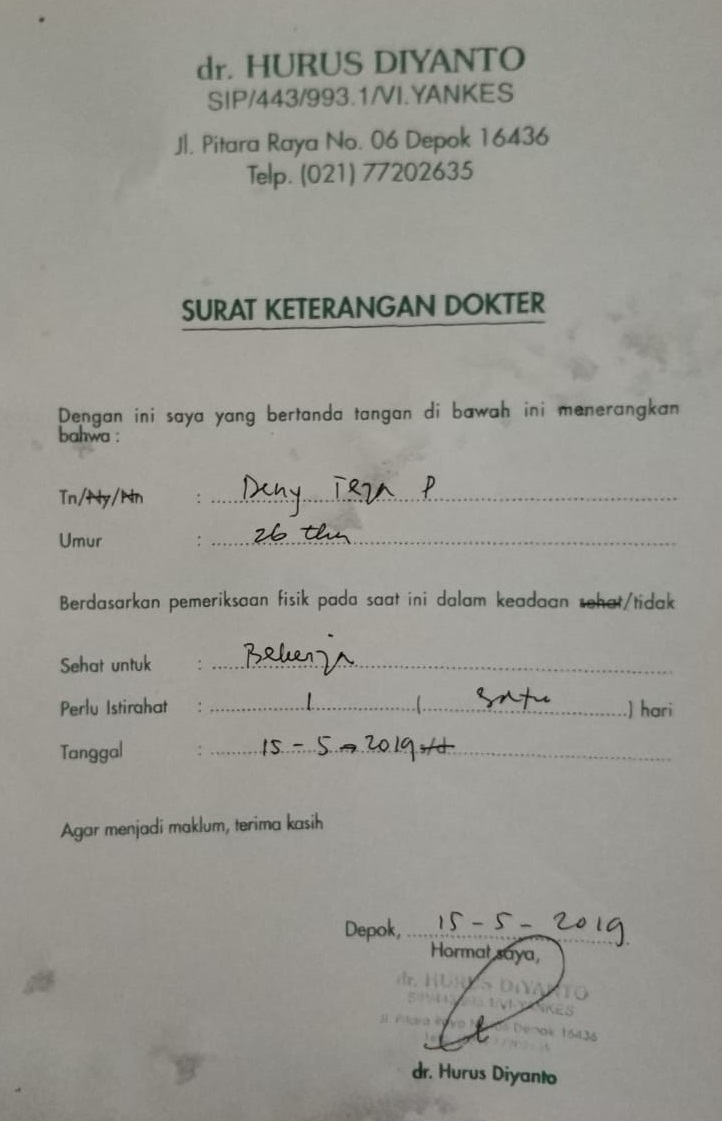 dr. HURUS DIYANTO
SIP/443/993.1/VI.YANKES
Jl. Pitara Raya No. 06 Depok 16436
Telp. (021) 77202635
SURAT KETERANGAN DOKTER
Dengan ini saya yang bertanda tangan di bawah ini menerangkan
bahwa :
Tn/Ny/Nn : Deny Teza P
Umur : 26 thn
Berdasarkan pemeriksaan fisik pada saat ini dalam keadaan sehat/tidak
Sehat untuk : Bekerja
Perlu Istirahat : 1 ( satu ) hari
Tanggal : 15 - 5 - 2019
Agar menjadi maklum, terima kasih
Depok, 15 - 5 - 2019
Hormat saya,
dr. HURUS DIYANTO
SIP/443/993.1/VI.YANKES
Jl. Pitara Raya No. 06 Depok 16436
dr. Hurus Diyanto